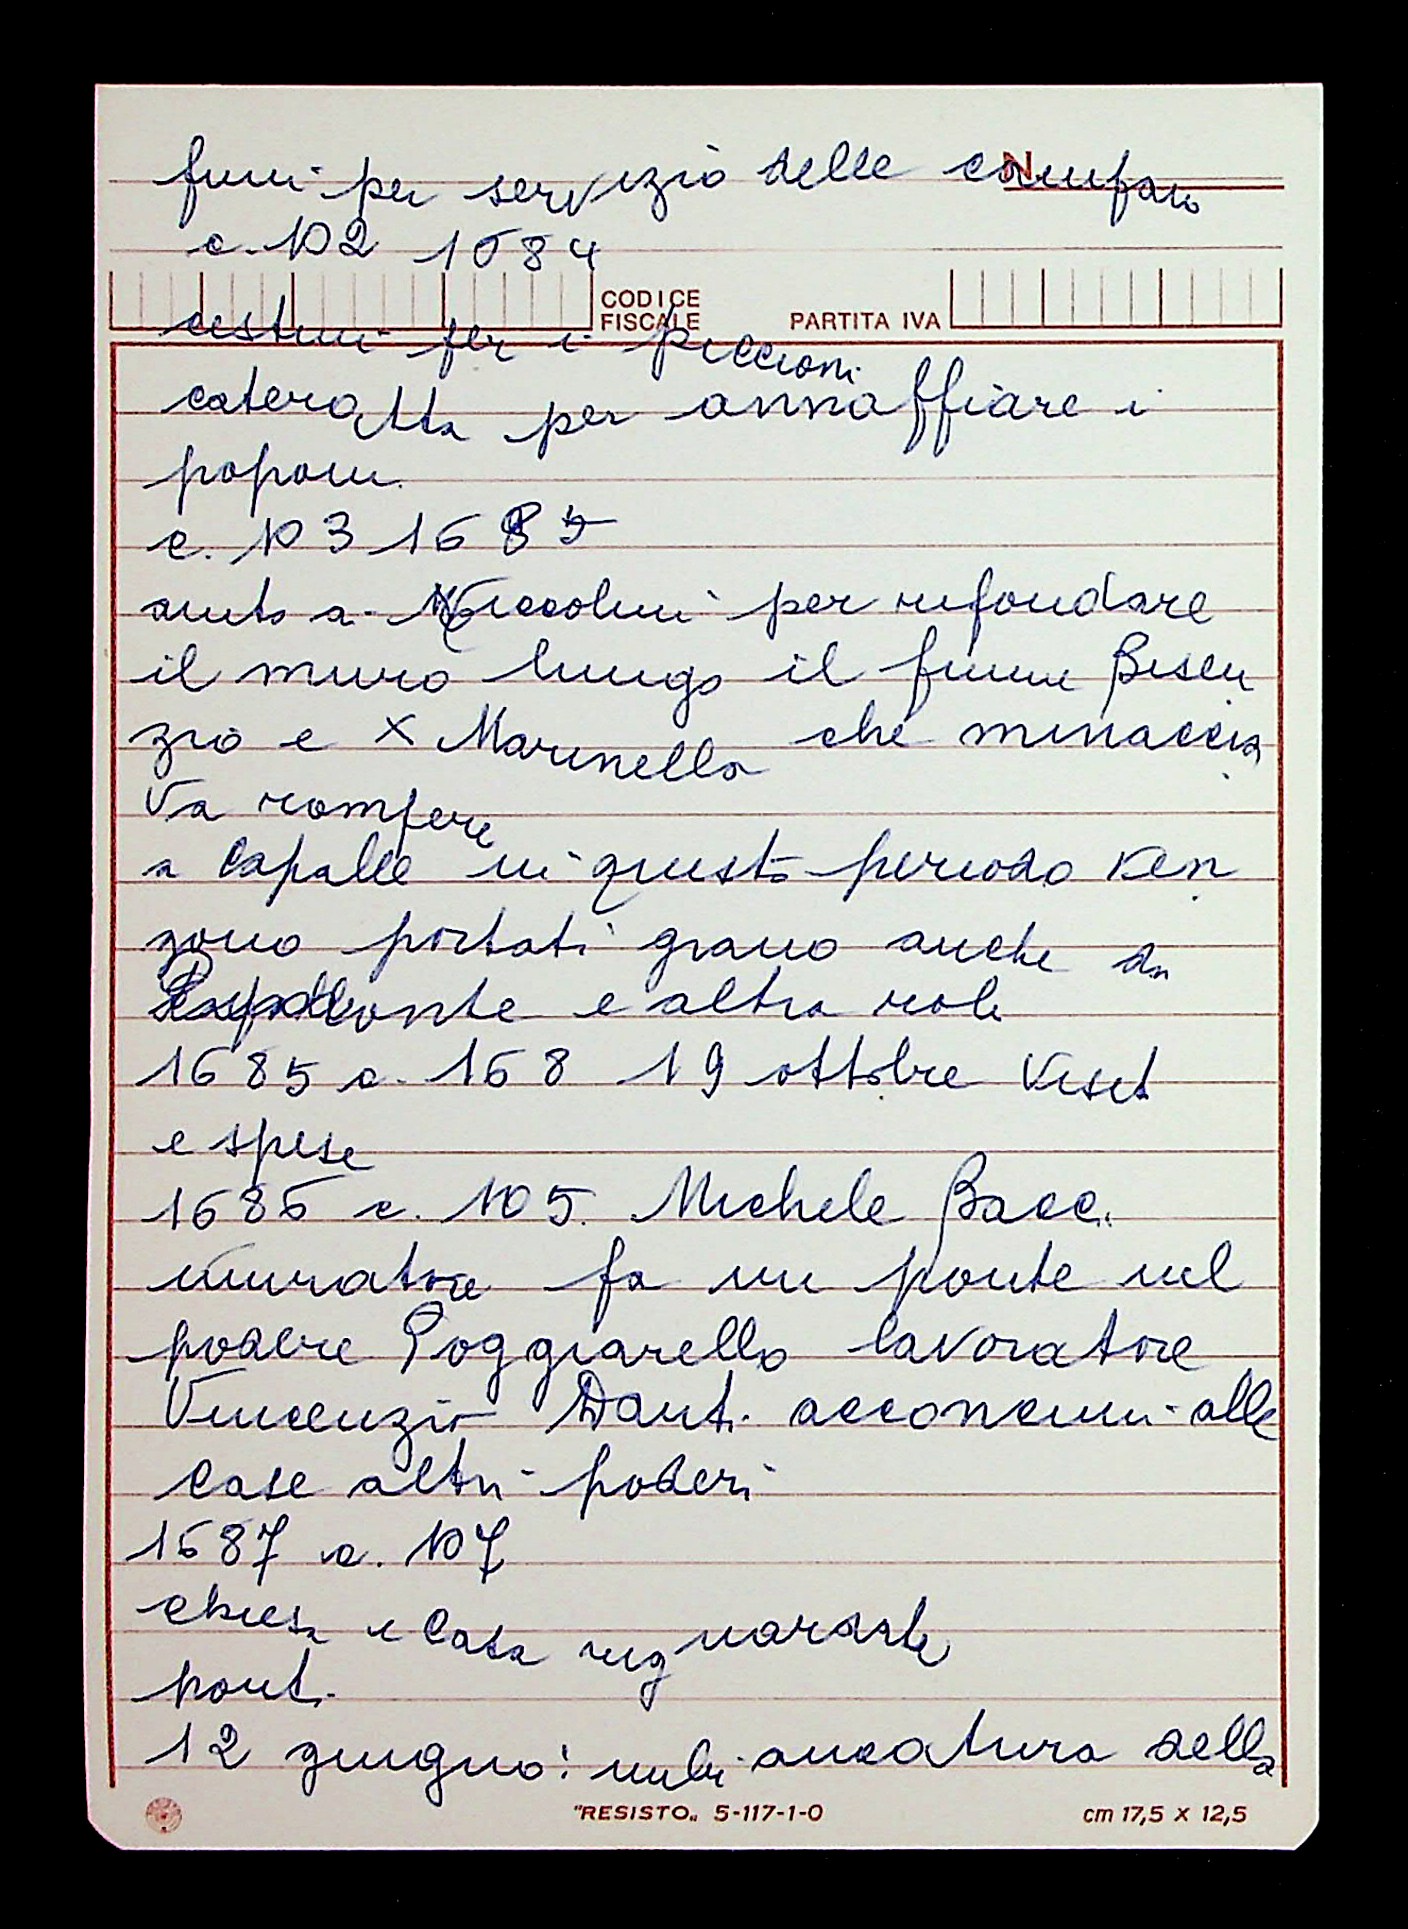 funi per servizio delle campane
N
c. 102 1684
CODICE FISCALE PARTITA IVA
cestini per i piccioni
cateratta per annaffiare i
poponi
c. 103 1685
aiuto a Niccolini per rifondare
il muro lungo il fiume Bisen
zio e X Marinella che minaccia
va rompere
a Capalle in questo periodo ven
gono portati grano anche da
e altra roba
1685 c. 168 19 ottobre visit
e spese
1686 c. 105. Michele Bacci
muratore fa un ponte nel
podere Poggiarello lavoratore
Vincenzio Danti acconcimi alle
case altri poderi
1687 c. 107
chiesa e casa
ponti
12 giugno: imbiancatura della
"RESISTO" 5-117-1-0 cm 17,5 x 12,5